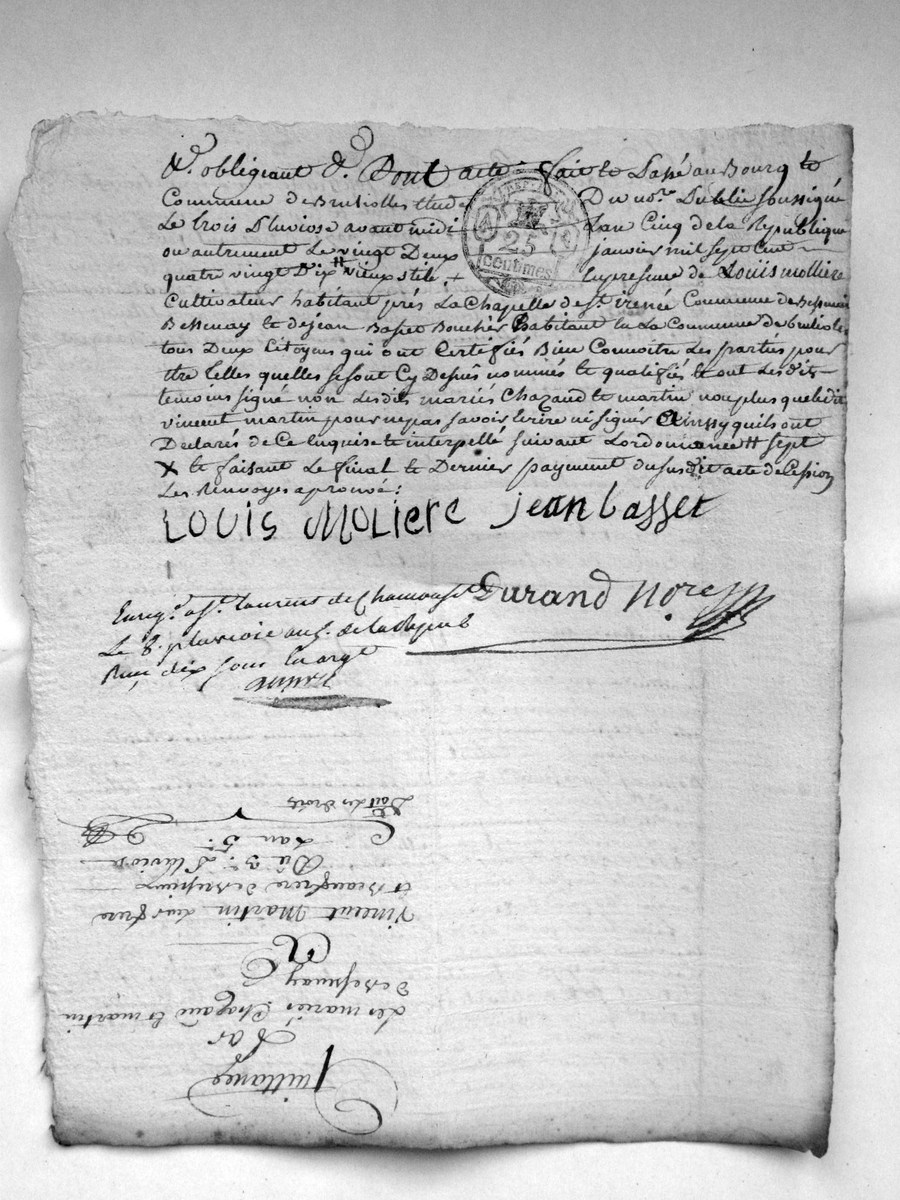 &.ª obligeant &.ª Dont acte fait et Passé au Bourg et
Commune de Brusiolles Etude Du no.re Public soussigné
Le trois Pluviose avant midi Lan Cinq de la Republique
ou autrement Le vingt Deux janvier mil sept Cent
quatre vingt Dix H vieux stile, + En presence de Loüis molliere
Cultivateur habitant prés La Chapelle de s.t irenée Commune de
Bessenay et de jean Basset Boucher habitant En La Commune de
tous Deux Citoyens qui ont Certifiés Bien Connoitre Les parties pour
Etre Celles quelles se sont Cy Dessus nommés et qualifiés Et ont Les dits
temoins signé non Les dits mariés Chazaud et martin non plus que ledit
vincent martin pour ne pas savoir Ecrire ni signer Ainssy quils ont
Declarés de Ce Enquis et interpellé suivant Lordonnance H sept
X et faisant Le final et Dernier payment du susdit acte de Cession
Les Renvoyes aprouvé:
25
centimes
LOUIS MOLIERE jean basset
Durand no.re
Enreg.é a s.t Laurent de Chamousset
Le 8. pluviose an 5. de la Repub
Reçu dix sous En argt
Quittance
Par
Les mariés Chazaud et martin
de Bessenay
A
Vincent Martin Leur frere
et Beaufrere de
Du 3.e Pluviose
Lan 5.e
Doit les droits